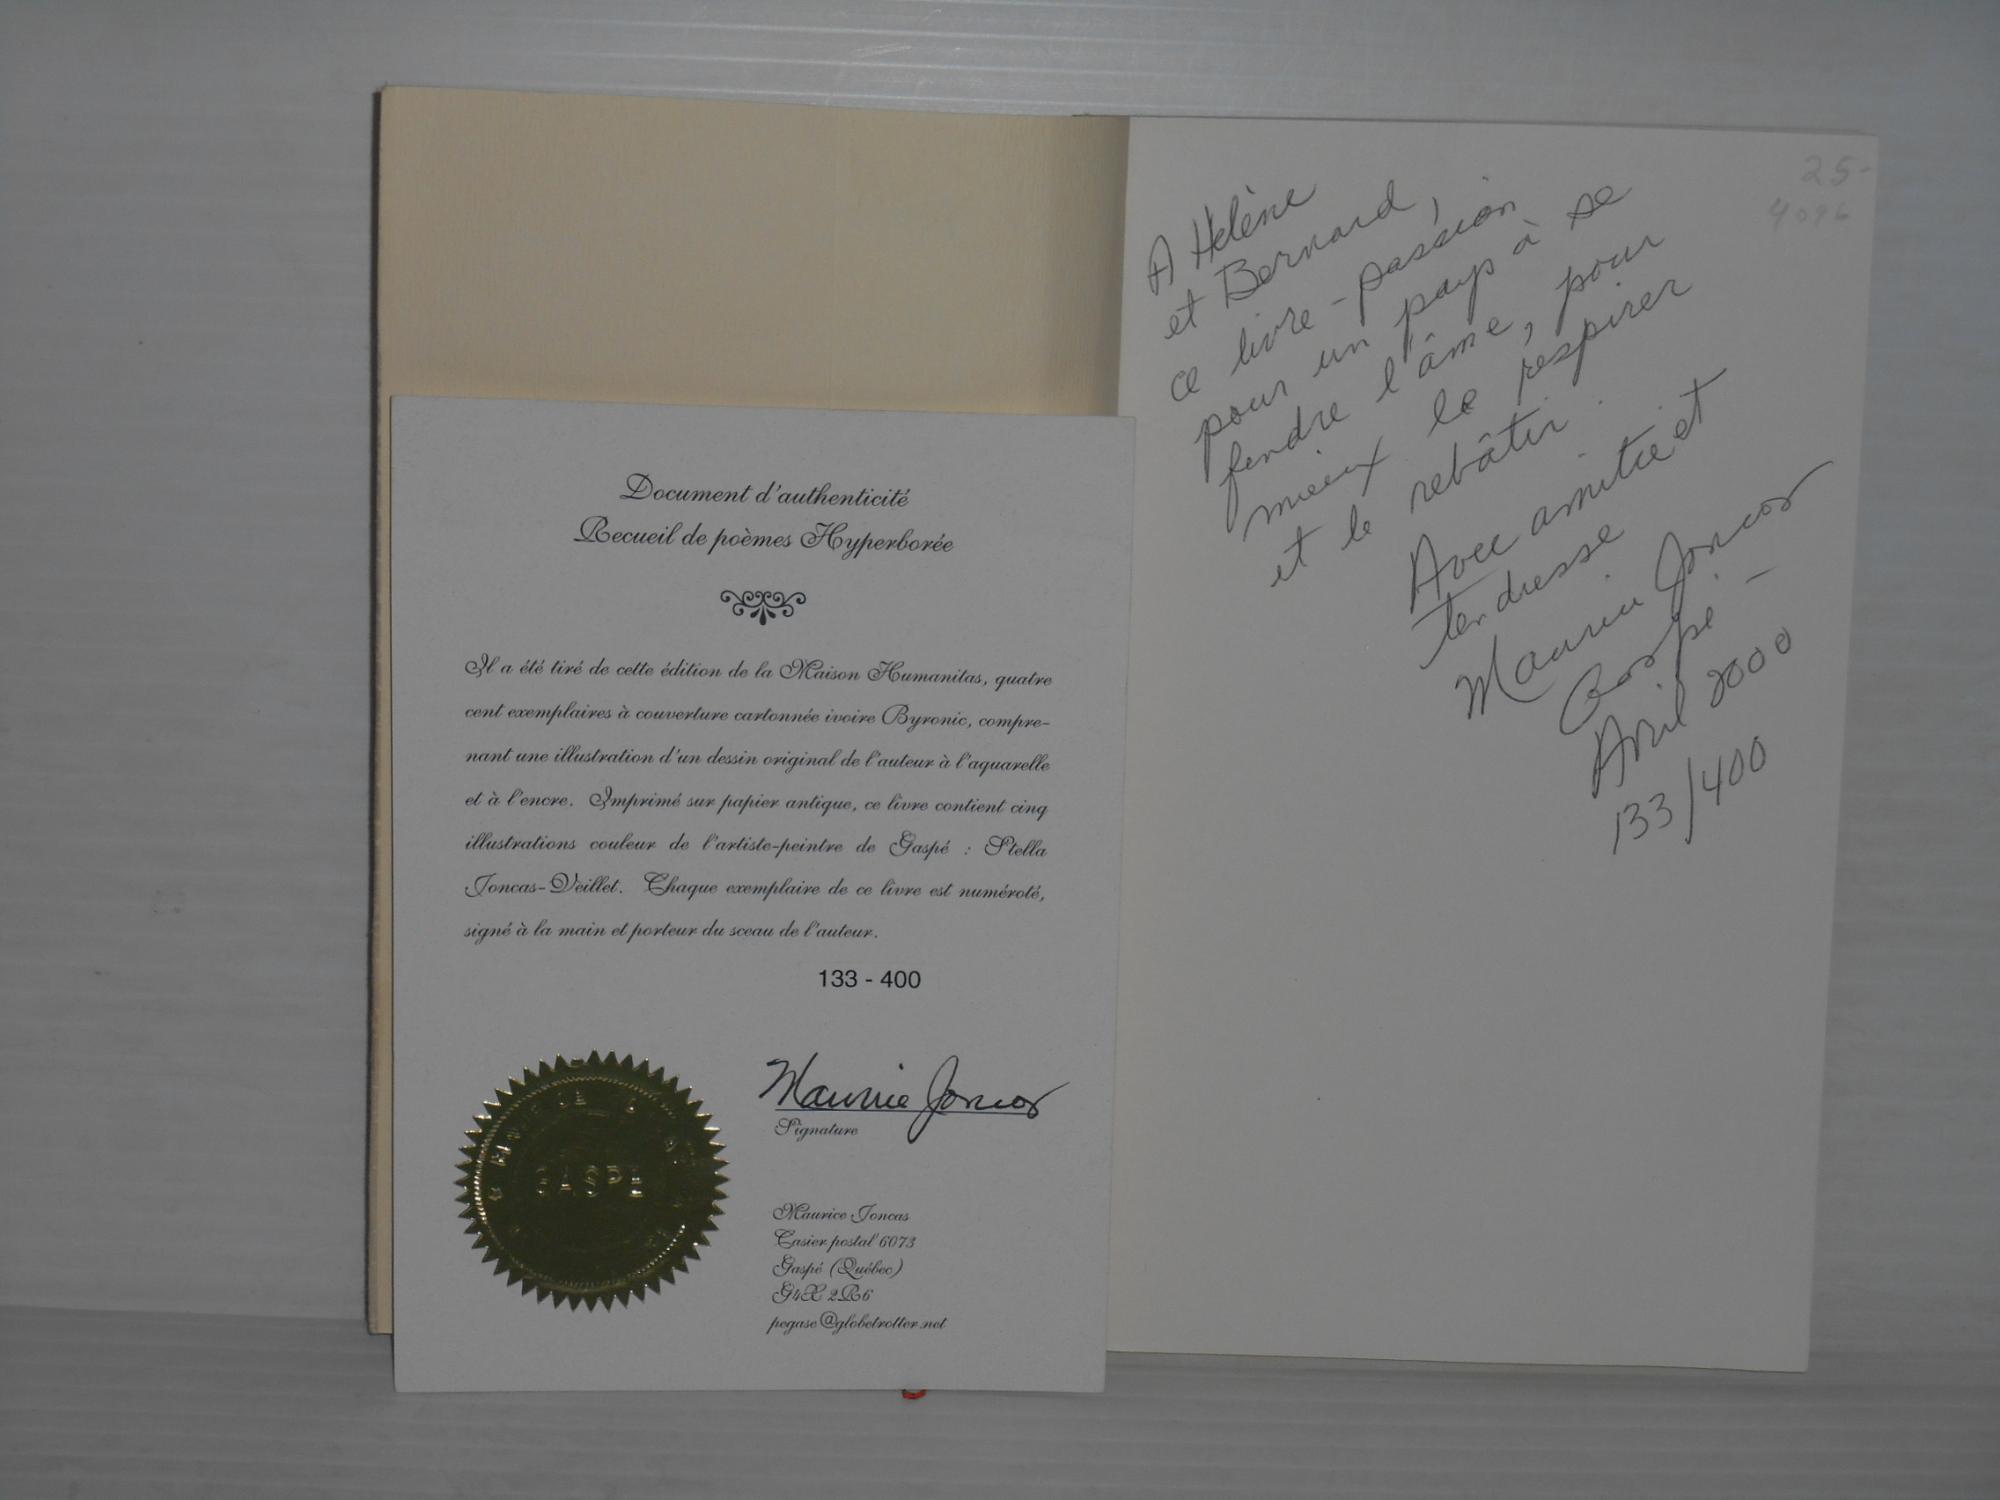 Document d'authenticité
Recueil de poèmes Hyperborée
Il a été tiré de cette édition de la Maison Humanitas, quatre
cent exemplaires à couverture cartonnée ivoire Byronic, compre-
nant une illustration d'un dessin original de l'auteur à l'aquarelle
et à l'encre. Imprimé sur papier antique, ce livre contient cinq
illustrations couleur de l'artiste-peintre de Gaspé : Stella
Joncas-Veillet. Chaque exemplaire de ce livre est numéroté,
signé à la main et porteur du sceau de l'auteur.
133 - 400
Maurice Joncas
Signature
GASPE
Maurice Joncas
Casier postal 6073
Gaspé (Québec)
G4X 2R6
pegase@globetrotter.net
25-
4096
A Hélène
et Bernard,
ce livre-passion
pour un pays à se
fendre l'âme, pour
mieux le respirer
et le rebâtir.
Avec amitié et
tendresse
Maurice Joncas
Gaspé -
Avril 2000
133/400